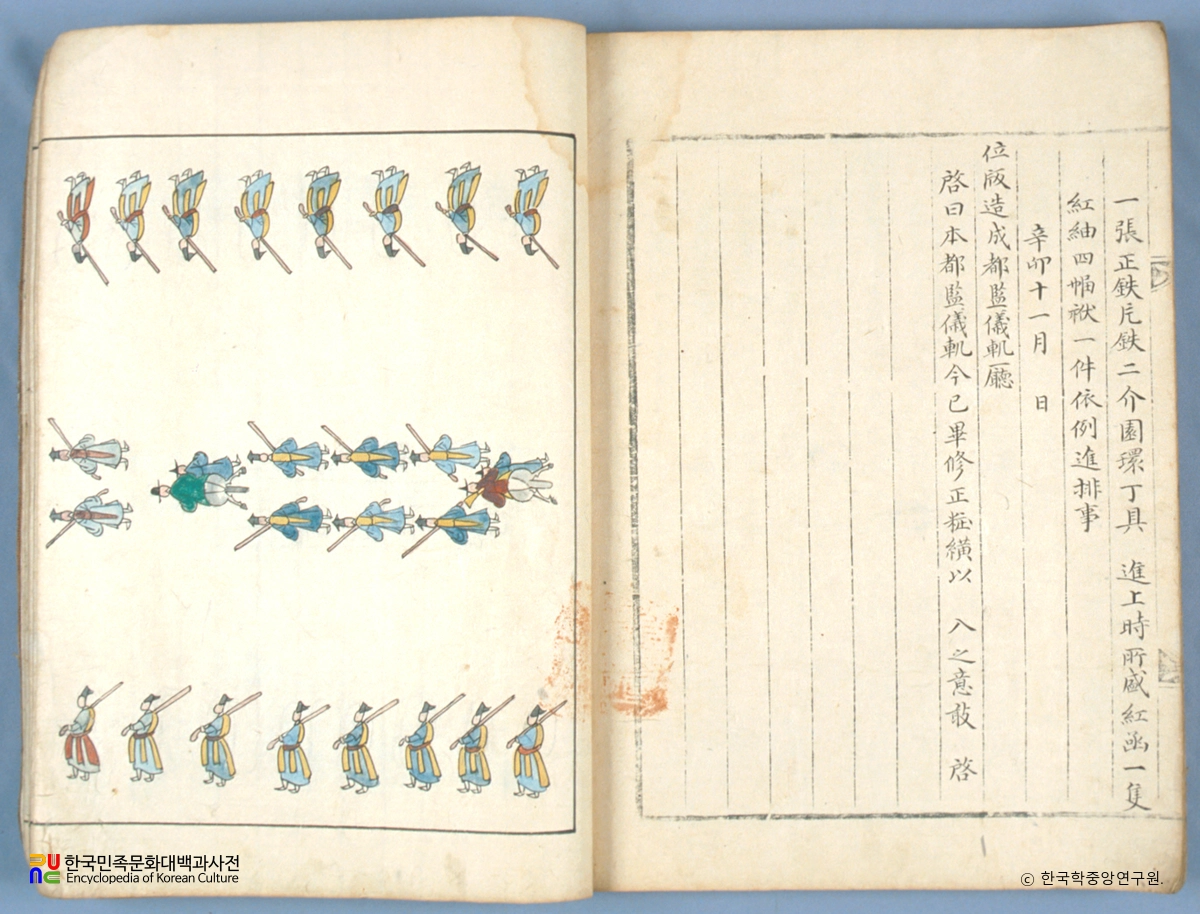 一張正鉄片鉄二介圎環丁具 進上時所盛紅函一隻
紅紬四幅袱一件依例進排事
辛卯十一月 日
位版造成都監儀軌廳
啓曰本都監儀軌今已畢修正粧䌙以 入之意敢 啓
한국민족문화대백과사전
Encyclopedia of Korean Culture
© 한국학중앙연구원.